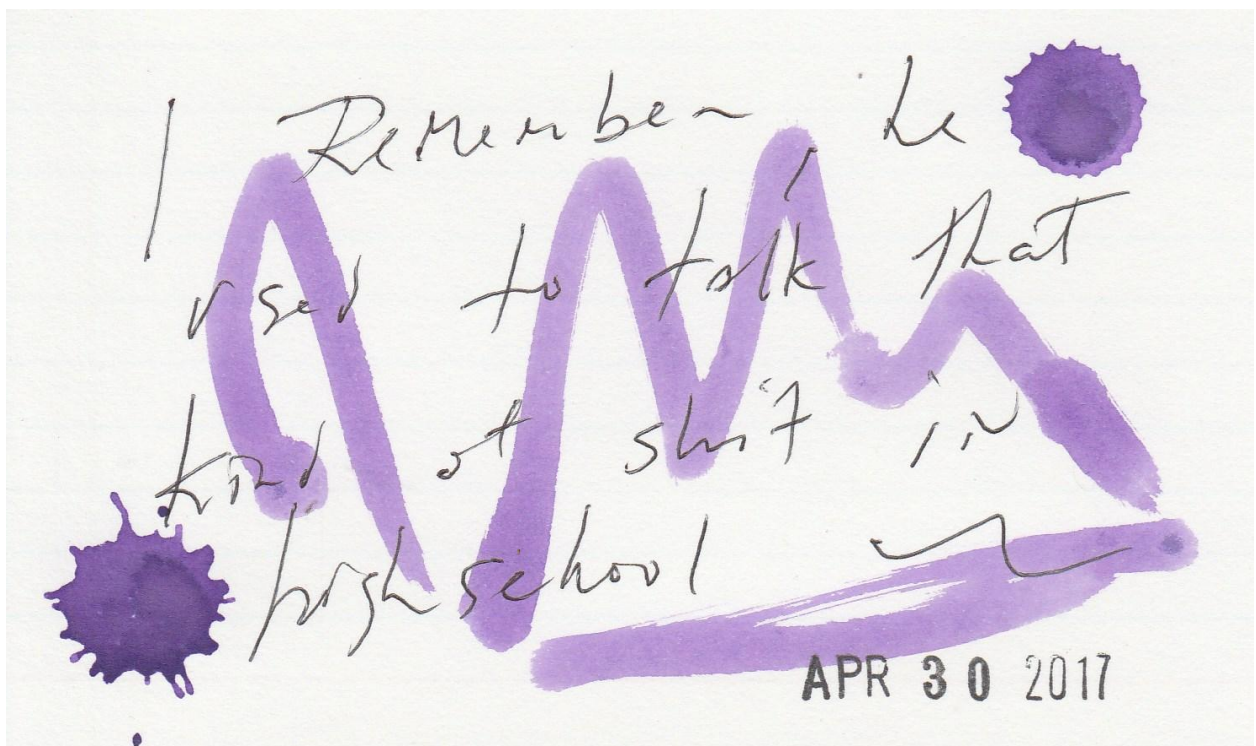 I Remember he
used to talk that
kind of shit in
high school
APR 30 2017